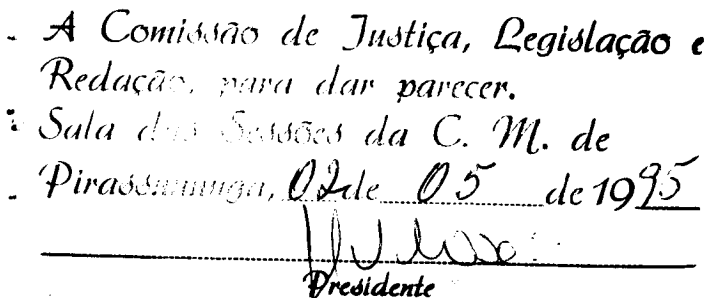 A Comissão de Justiça, Legislação e
Redação, para dar parecer.
Sala das Sessões da C. M. de
Pirassununga, 02 de 05 de 1995
Presidente